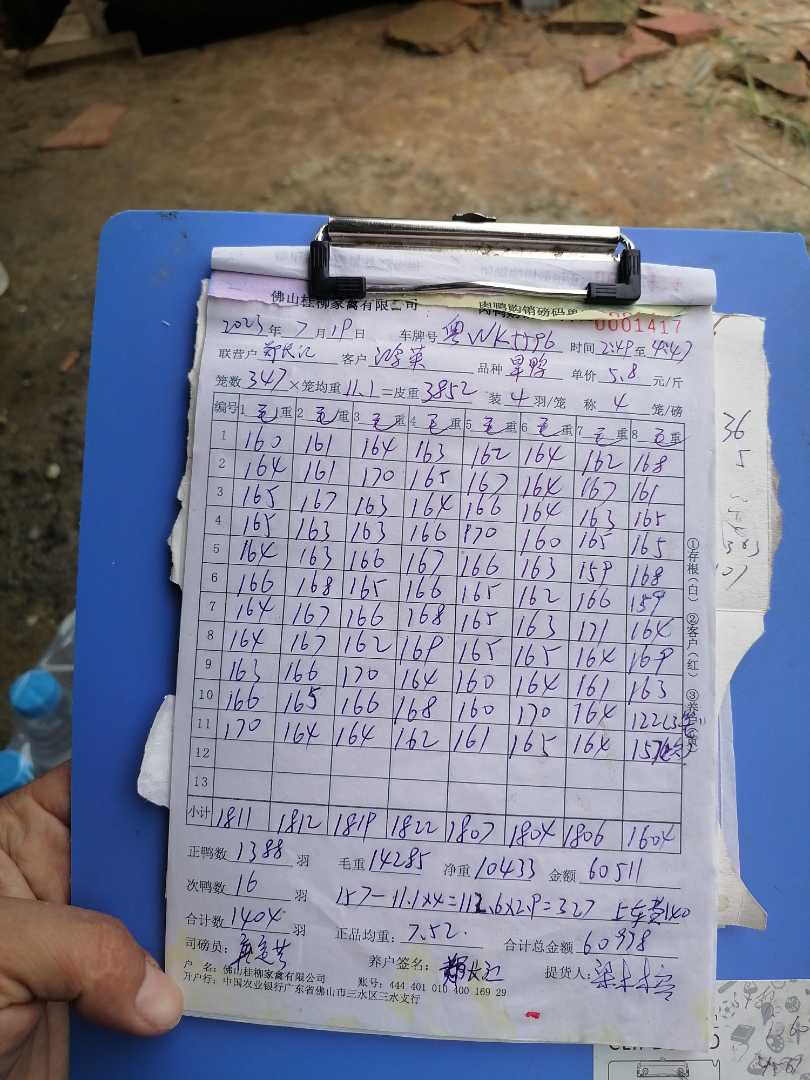 佛山桂柳家禽有限公司 肉鸭购销磅码单
0001417
2023年 7月19日 车牌号 粤WK5596 时间 2:49至4:47
联营户 郑长江 客户 品种 旱鸭 单价 5.8 元/斤
笼数 347 ×笼均重 11.1 =皮重 3852 装 4 羽/笼 称 4 笼/磅
编号 1 毛重 2 毛重 3 毛重 4 毛重 5 毛重 6 毛重 7 毛重 8 毛重
1 160 161 164 163 162 164 162 168
2 164 161 170 165 167 164 167 161
3 165 167 163 164 166 164 163 165
4 165 163 163 166 170 160 165 165
5 164 163 166 167 166 163 159 168
6 166 168 165 166 165 162 166 159
7 164 167 166 168 165 163 171 164
8 164 167 162 169 165 165 164 169
9 163 166 170 164 160 164 161 163
10 166 165 166 168 160 170 164 122(3笼)
11 170 164 164 162 161 165 164 157
12
13
小计 1811 1812 1819 1822 1807 1804 1806 1604
正鸭数 1388 羽 毛重 14285 净重 10433 金额 60511
次鸭数 16 羽 157-11.1×4=112.6×2.9=327 上车费140
合计数 1404 羽 正品均重: 7.52 合计总金额 60978
司磅员: 养户签名: 郑长江 提货人:
户 名: 佛山桂柳家禽有限公司 账号: 444 401 010 400 169 29
开户行: 中国农业银行广东省佛山市三水区三水支行
①存根(白) ②客户(红) ③养户(黄)
36
5